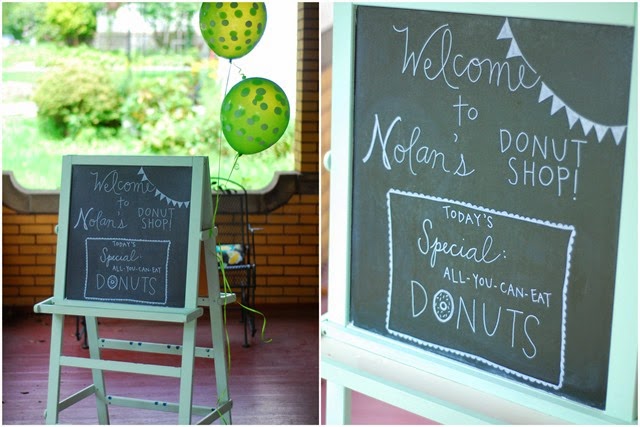 Welcome
to
Nolan's DONUT
SHOP!
TODAY'S
Special:
ALL-YOU-CAN-EAT
DONUTS
Welcome
to
Nolan's DONUT
SHOP!
TODAY'S
Special:
ALL-YOU-CAN-EAT
DONUTS